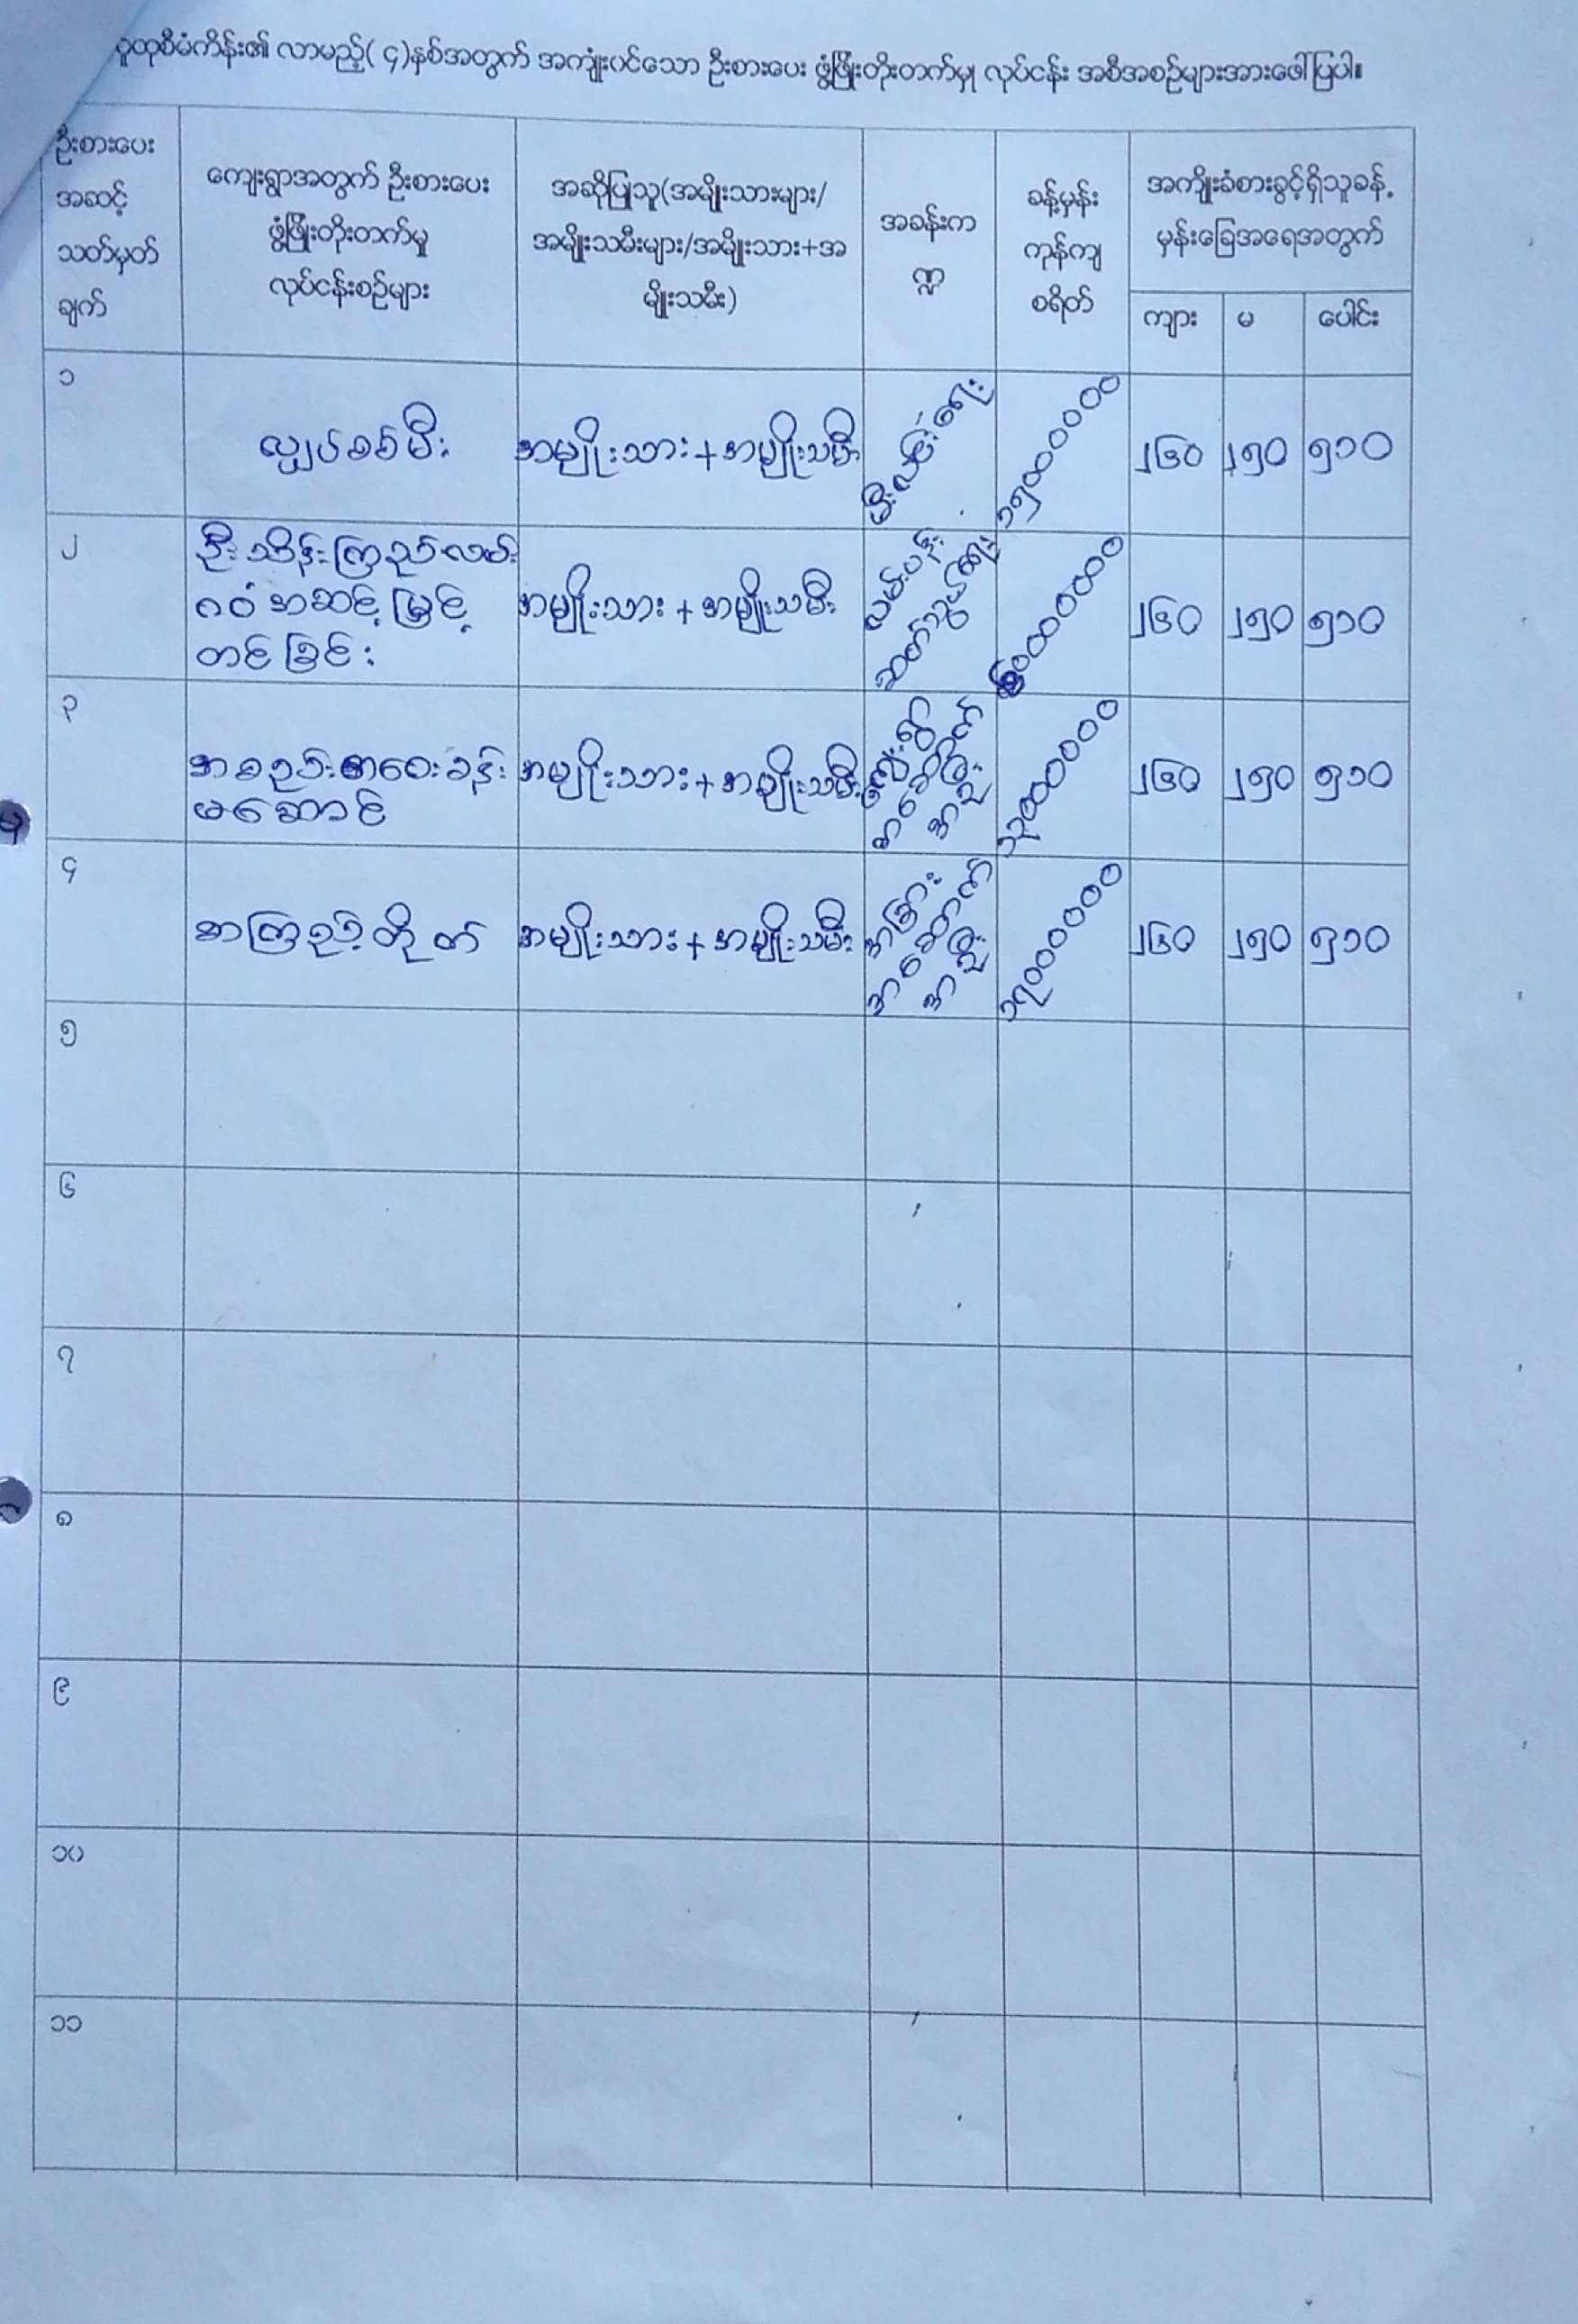 လူထုစီမံကိန်း၏ လာမည့်(၄)နှစ်အတွက် အကျုံးဝင်သော ဦးစားပေး ဖွံ့ဖြိုးတိုးတက်မှု လုပ်ငန်း အစီအစဉ်များအားဖေါ်ပြပါ။
ဦးစားပေး
အဆင့်
သတ်မှတ်
ချက်
ကျေးရွာအတွက် ဦးစားပေး
ဖွံ့ဖြိုးတိုးတက်မှု
လုပ်ငန်းစဉ်များ
အဆိုပြုသူ(အမျိုးသားများ/
အမျိုးသမီးများ/အမျိုးသား+အ
မျိုးသမီး)
အခန်းက
ဏ္ဍ
ခန့်မှန်း
ကုန်ကျ
စရိတ်
အကျိုးခံစားခွင့်ရှိသူခန့်
မှန်းခြေအရေအတွက်
ကျား
မ
ပေါင်း
၁
လျှပ်စစ်မီး
အမျိုးသား+အမျိုးသမီး
မီးလင်းရေး
၁၅၀၀၀၀၀၀
၂၆၀
၂၅၀
၅၁၀
၂
ဦးသိန်းကြည်လမ်း
ဂဝံအဆင့်မြှင့်
တင်ခြင်း
အမျိုးသား+အမျိုးသမီး
လမ်းပန်း
ဆက်သွယ်ရေး
၂၆၀
၂၅၀
၅၁၀
၃
အစည်းအဝေးခန်း
မဆောင်
အမျိုးသား+အမျိုးသမီး
အဆောက်
အဦး
၂၆၀
၂၅၀
၅၁၀
၄
စာကြည့်တိုက်
အမျိုးသား+အမျိုးသမီး
အခြား
အဆောက်
အဦး
၁၇၀၀၀၀၀၀
၂၆၀
၂၅၀
၅၁၀
၅
၆
၇
၈
၉
၁၀
၁၁